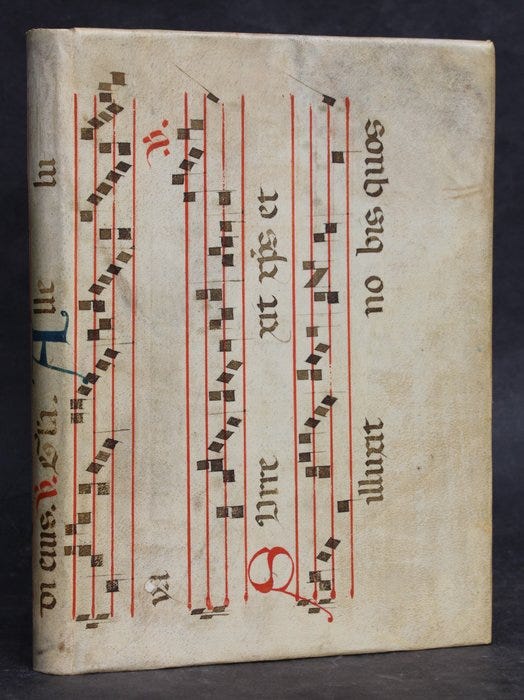 di eius. ℣. Gl'ia. Alle lu
ya ℣.
SUrre xit xp̄s et
illuxit no bis quos